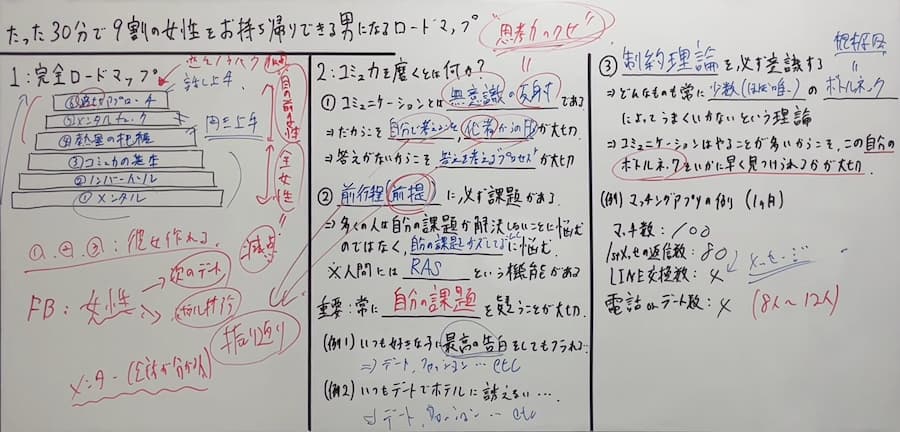 たった30分で9割の女性をお持ち帰りできる男になるロードマップ
"思考力のクセ"
1:完全ロードマップ
話し上手
聞き上手
目の前の女性
全女性
③コミュ力の基本
②ノンバーバル
①メンタル
①.②.③:彼女作れる.
FB:女性
次のデート
ホテル打診
振り返り
2:コミュ力を磨くとは何か?
①コミュニケーションとは無意識の反射である
⇒だからこそ自分で考えること、他者からのFBが大切
⇒答えがないからこそ答えを考える"プロセス"が大切
②前行程(前提)に必ず課題がある
⇒多くの人は自分の課題が解決しないことに悩む
のではなく、自分の課題がズレてることに悩む
※人間にはRASという機能がある
重要:常に自分の課題を疑うことが大切.
(例1)いつも好きな子に最高の告白をしてもフラれる…
⇒デート、ファッション…etc
(例2)いつもデートでホテルに誘えない…
⇒デート、ファッション…etc
根本原因
③制約理論を必ず意識する
⇒どんなものも常に少数(ほぼ唯一)のボトルネック
によってうまくいかないという理論
⇒コミュニケーションはやることが多いからこそ、この自分の
ボトルネックをいかに早く見つけられるかが大切.
(例)マッチングアプリの例(1ヶ月)
マッチ数:100
1stメッセの返信数:80
LINE交換数:x
電話orデート数:x (8人~12人)